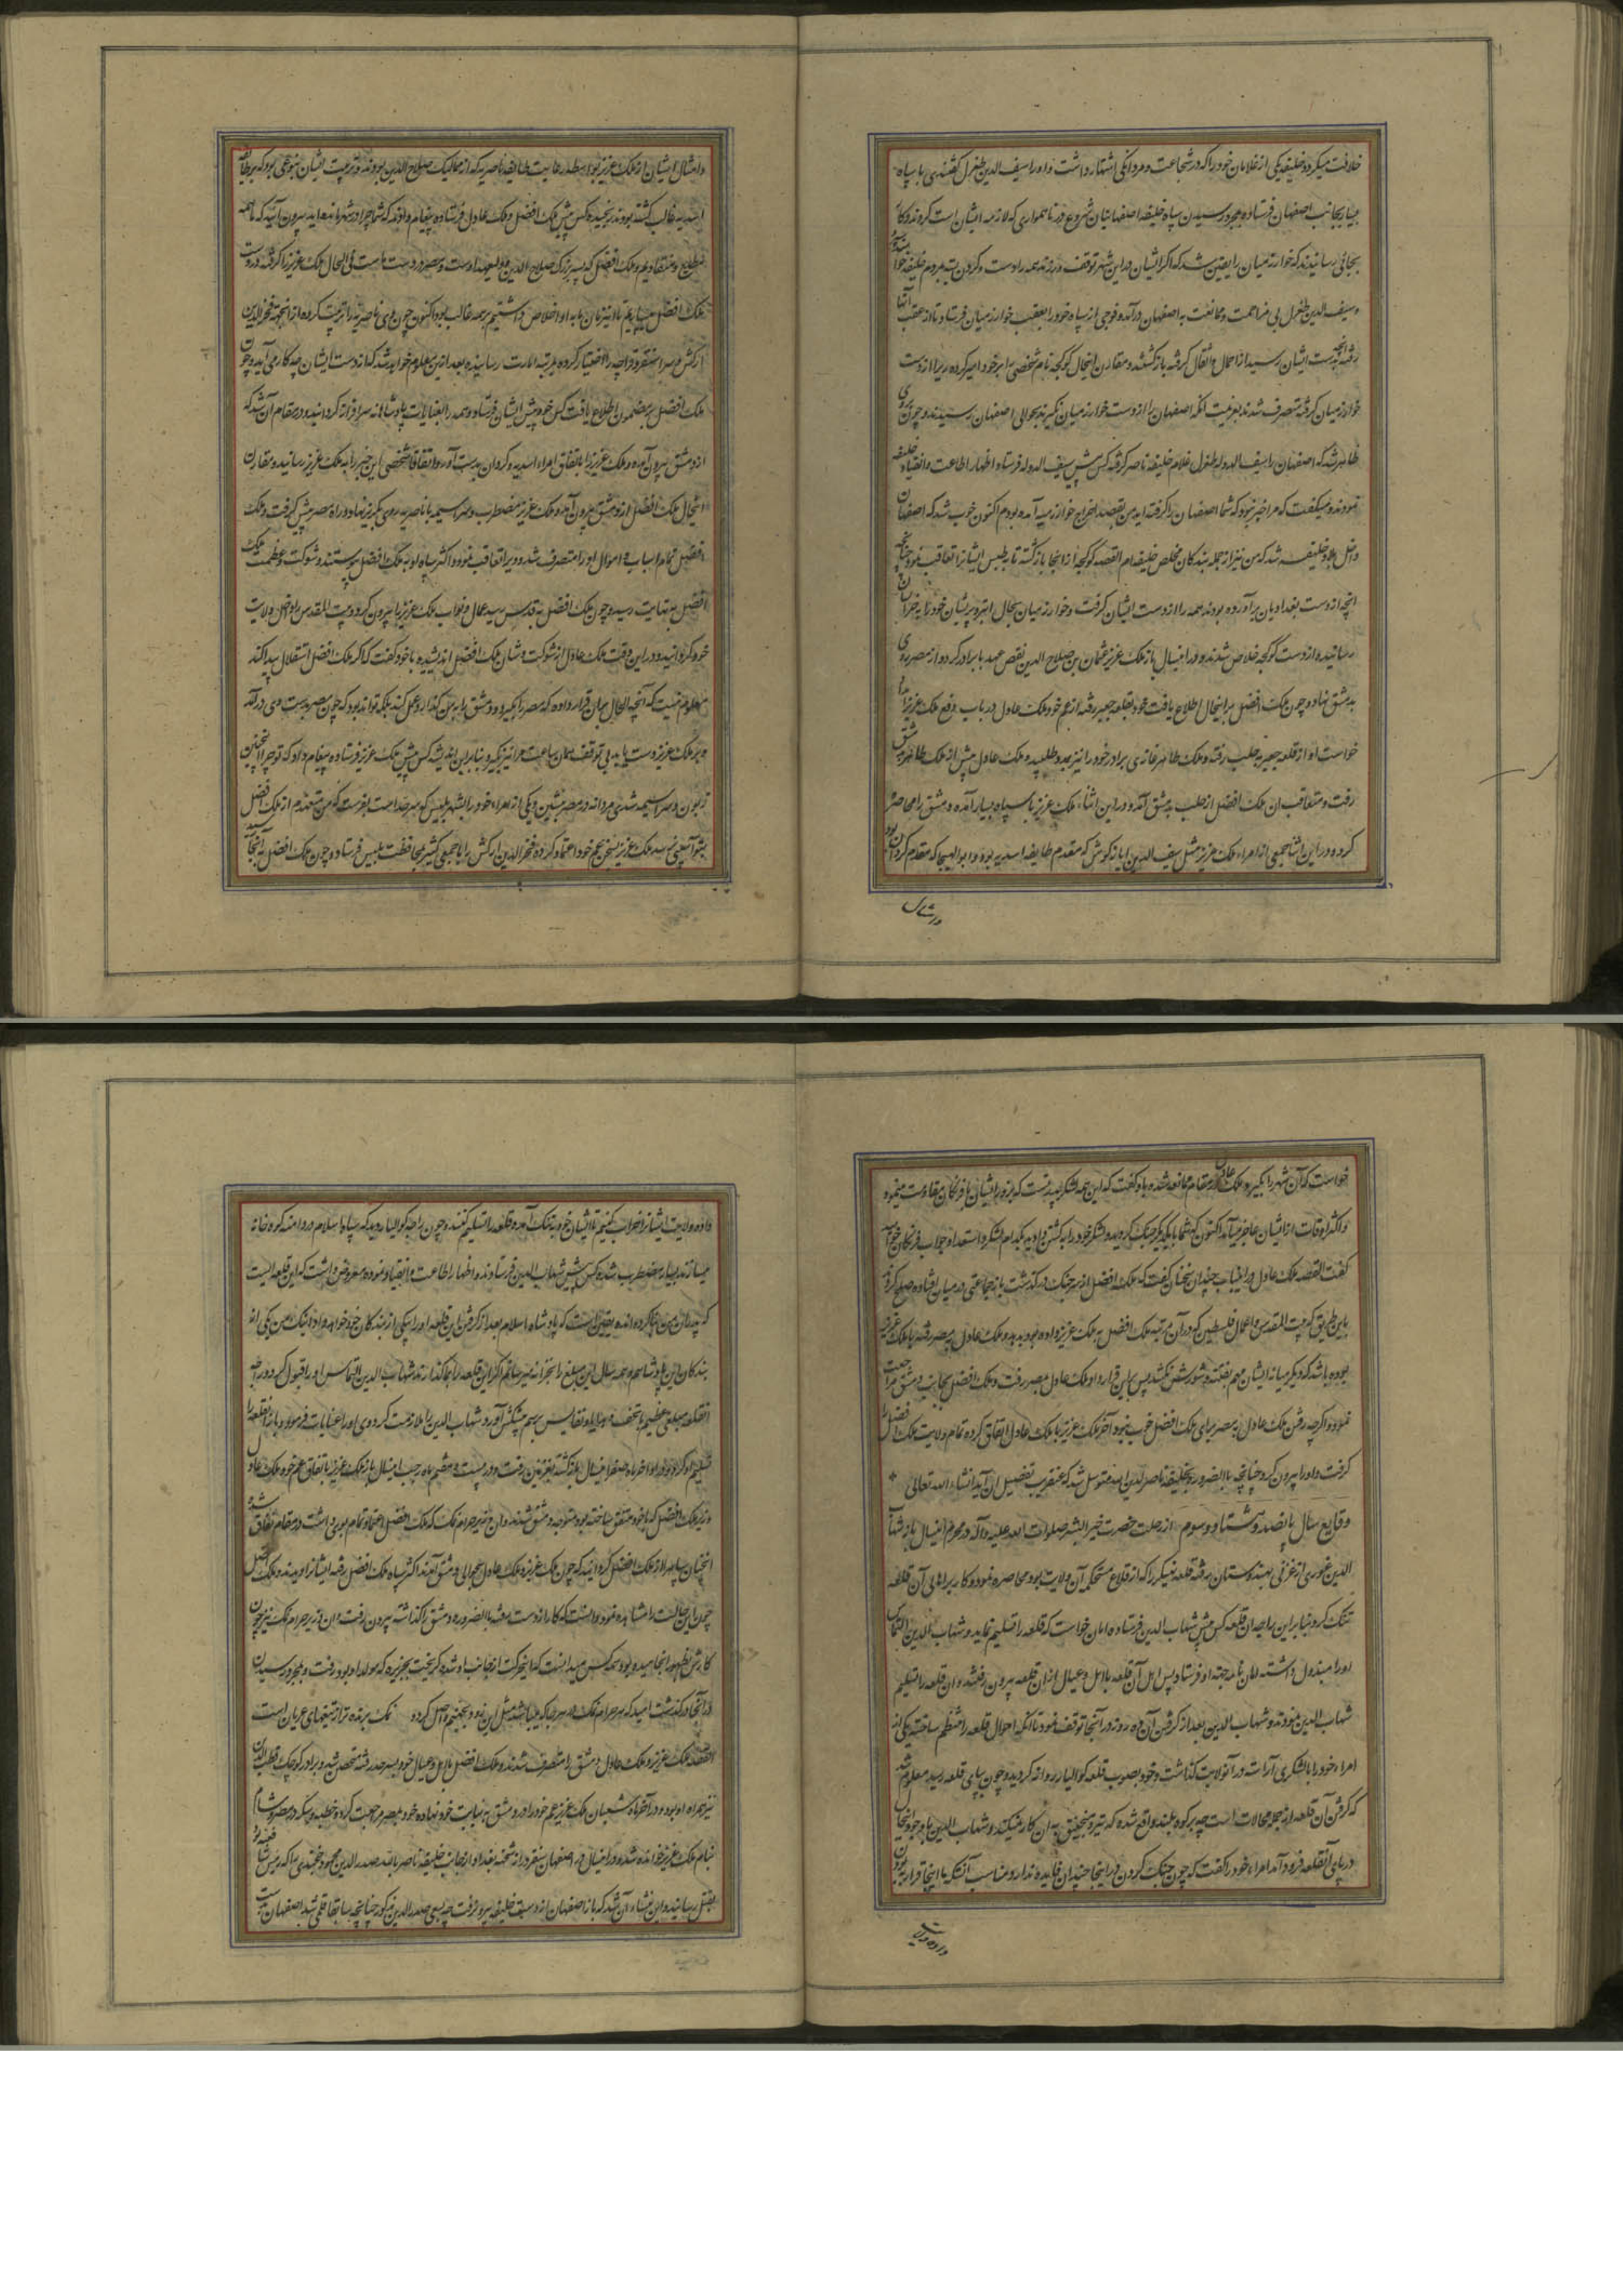 خلافت میکرد و خلیفه یکی از غلامان خود را که در شجاعت و مردانکی اشتهار داشت و او را سیف الدین طغرل کفتندی با سپاه
بسیار بجانب اصفهان فرستاده بمجرد رسیدن سپاه خلیفه اصفهانیان شروع در ناهمواری که لازمه ایشان است کردند و کار
بجائی رسانیدند که خوارزمیان را یقین شد که اکر ایشان در این شهر توقف ورزند همه را دست و کردن بسته بمردم خلیفه خواهند سپرد
و سیف الدین طغرل بی مزاحمت و ممانعت به اصفهان درآمد و فوجی از سپاه خود را بعقب خوارزمیان فرستاد تا از عقب آنها
رفته آنچه بدست ایشان رسید از احمال و اثقال کرفته باز کشتند و مقارن اینحال کوکجه نام شخصی را بر خود امیر کرده ری را از دست
خوارزمیان کرفته متصرف شدند بعزیمت آنکه اصفهان را از دست خوارزمیان بکیرند بحوالی اصفهان رسیدند و چون بروی
ظاهر شد که اصفهان را سیف الدوله طغرل غلام خلیفه ناصر کرفته کس پیش سیف الدوله فرستاد و اظهار اطاعت و انقیاد خلیفه
نمودند و میکفت که مرا خبر نبود که شما اصفهان را کرفته اید من بقصد اخراج خوارزمیه آمده بودم اکنون خوب شد که اصفهان
داخل بلاد خلیفه شد که من نیز از جمله بندکان مخلص خلیفه ام القصه کوکجه از انجا باز کشته تا به طبس ایشانرا تعاقب نمود چنانچه
آنچه از دست بغدادیان برآورده بودند همه را از دست ایشان کرفت و خوارزمیان بحال ابتر و پریشان خود را به خراسان
رسانیده از دست کوکجه خلاص شدند و در این سال باز ملک عزیز عثمان بن صلاح الدین نقض عهد با برادر کرده از مصر روی
به دمشق نهاد و چون ملک افضل بر اینحال اطلاع یافت خود بقلعه جعبر رفته از عم خود ملک عادل در باب دفع ملک عزیز مدد
خواست او از قلعه جعبر به حلب رفته و ملک ظاهر غازی برادر خود را نیز بمدد طلبید و ملک عادل پیش از ملک ظاهر به دمشق
رفت و متعاقب ان ملک افضل از حلب به دمشق آمد و در این اثناء ملک عزیز با سپاه بسیار آمده دمشق را محاصره
کرده و در این اثنا جمعی از امراء ملک عزیز مثل سیف الدین ایازکوش که مقدم طایفه اسدیه بود و ابوالهیجا که مقدم کردان بود
و امثال ایشان از ملک عزیز بواسطه رعایت طایفه ناصریه که از ممالیک صلاح الدین بودند و تربیت ایشان بنوعی بود که بر طایفه
اسدیه غالب کشته بودند رنجیده کس پیش ملک افضل و ملک عادل فرستاده پیغام دادند که شما چرا در شهر مانده اید بیرون آئید که ما همه
مطیع و منقادیم و ملک افضل که پسر بزرک صلاح الدین و ولیعهد اوست و مصر در دست ماست فی الحال ملک عزیز را کرفته در دست
ملک افضل میسپاریم تا وقتیکه زمان ما به او اخلاص داشتیم بر همه غالب بود و اکنون چون وی ناصریه را تربیت کرده از آنجمله فخرالدین
ارکش و سراسنقر و قراجه را اختیار کرده بمرتبه امارت رسانیده بعد از این معلوم خواهد شد که از دست ایشان چه کار می آید و چون
ملک افضل بر مضمون اطلاع یافت کس خود پیش ایشان فرستاد و همه را بعنایات پادشاهانه سرافراز کردانید و در مقام آن شد که
از دمشق بیرون آمده و ملک عزیز را باتفاق امراء اسدیه و کردان بدست آورد و اتفاقا شخصی این خبر را به ملک عزیز رسانید و مقارن
اینحال ملک افضل از دمشق بیرون آمد و ملک عزیز مضطرب و سراسیمه با ناصریه روی بکریز نهاد و راه مصر پیش کرفت و ملک
افضل تمام اسباب و اموال او را متصرف شد و ویرا تعاقب نمود و اکثر سپاه او به ملک افضل پیوستند و شوکت و عظمت ملک
افضل به نهایت رسید و چون ملک افضل به قدس رسید عمال و نواب ملک عزیز را بیرون کرد و بیت المقدس را داخل ولایت
خود کردانید و در این وقت ملک عادل از شوکت و شان ملک افضل اندیشیده با خود کفت که اکر ملک افضل استقلال پیدا کند
معلوم نیست که آنچه الحال میان قرار داده که مصر را بکیرد و دمشق را به من کذارد عمل کند بلکه تواند بود که چون مصر بدست وی درآمد
و بر ملک عزیز دست یابد بی توقف همان ساعت مرا نیز بکیرد بنابر این اندیشه کس پیش ملک عزیز فرستاده پیغام داد که تو چرا اینچنین
زبون و سراسیمه شدی مردانه در مصر بنشین و یکی از امراء خود را بشهر بلبیس که سرحد است بفرست که من متعهدم از ملک افضل
بتو آسیبی نرسد ملک عزیز بسخن عم خود اعتماد کرده فخرالدین ارکش را با جمعی کثیر بمحافظت بلبیس فرستاد و چون ملک افضل به آنجا رسید
خواست که آن شهر را بکیرد ملک عادل در مقام ممانعه شده با او کفت که این همه لشکر بیدینست که بزور ایشان با فرنکان مقاومت مینموده
و اکثر اوقات از ایشان عاجز میآمد اکنون که شما با یکدیکر جنک کردید و لشکر خود را به کشتن دادید بکدام لشکر و استعداد جواب فرنکان خواهید
کفت القصه ملک عادل در این باب چندان سخنان کفت که ملک افضل از سر جنک درکذشت باز جماعتی در میان افتاده صلح کردند
باین طریق که بیت المقدس و اعمال فلسطین که در آن مرتبه ملک افضل به ملک عزیز داده بود بدهد و ملک عادل به مصر رفته با ملک عزیز
بوده باشد که دیکر میانه ایشان مهم بفتنه و شورش نکشد پس باین قرارداد ملک عادل بمصر رفت و ملک افضل بجانب دمشق مراجعت
نمود و اکرچه رفتن ملک عادل به مصر برای ملک افضل خوب نبود آخر ملک عزیز با ملک عادل اتفاق کرده تمام ولایت ملک افضل را
کرفت و او را بیرون کرد چنانچه بالضرور بخلیفه ناصرلدین الله متوسل شد که عنقریب تفصیل ان آید انشاء الله تعالی
وقایع سال پانصد و هشتاد و سوم از رحلت حضرت خیرالبشر صلوات الله علیه و آله در محرم این سال باز شهاب
الدین غوری از غزنی بهندوستان رفته قلعه بهنکر را که از قلاع مستحکم آن ولایت بود محاصره نمود و کار بر اهالی آن قلعه
تنک کرد بنابر این راجه ان قلعه کس پیش شهاب الدین فرستاده امان خواست که قلعه را تسلیم نماید و شهاب الدین التماس
او را مبذول داشته امان نامه جهت او فرستاد پس اهل آن قلعه با اهل و عیال از ان قلعه بیرون رفتند و ان قلعه را تسلیم
شهاب الدین نمودند و شهاب الدین بعد از کرفتن آن ده روز در آنجا توقف نمود تا آنکه احوال قلعه را منتظم ساخته یکی از
امراء خود را با لشکری آراسته در آنولایت کذاشت و خود بصوب قلعه کوالیار روانه کردید و چون بپای قلعه رسید معلوم شد
که کرفتن آن قلعه از جمله محالات است چه بر کوه بلند واقع شده که تیر و منجنیق به ان کار نمیکند و شهاب الدین با وجود اینحال
در پای آنقلعه فرود آمد امراء خود را کفت که چون جنک کردن در اینجا چندان فایده ندارد مناسب آنستکه ما اینجا قرار بودن
داده ولایت ایشانرا خراب کنیم تا ایشان خود به تنک آمده قلعه را تسلیم کنند و چون راجه کوالیار دید که سپاه اسلام در دامنه کوه خانه
میسازند بسیار مضطرب شده کس پیش شهاب الدین فرستاده اظهار اطاعت و انقیاد نموده معروض داشت که این قلعه ایست
که پدران من بنا کرده اند و یقین است که پادشاه اسلام بعد از کرفتن این قلعه او را به یکی از بندکان خود خواهد داد اینک من یکی از
بندکان این پادشاهم و همه سال این مبلغ را بخزانه میرسانم اکر این قلعه را بما کذارند شهاب الدین التماس او را قبول کرد و راجه
آنقلعه مبلغی عظیم با تحف و هدایا و نفایس برسم پیشکش آورد و شهاب الدین را ملازمت کرد وی او را عنایات فرمود و باز قلعه را
تسلیم او کرد و در اواخر ماه صفر این سال باز کشته بغزنین رفت و در بیست و هشتم ماه رجب این سال باز ملک عزیز با تفاق عم خود ملک عادل
وزیر ملک افضل که با خود متفق ساخته بود متوجه دمشق شدند و ان وزیر حرام نمک که ملک افضل اعتماد تمام بوی داشت در مقام نفاق شده
آنچنان سپاه را از ملک افضل کردانید که چون ملک عزیز و ملک عادل بحوالی دمشق آمدند اکثر سپاه ملک افضل رفته ایشانرا دیدند و ملک افضل
چون این حالت را مشاهده نمود دانست که کار از دست رفته بالضروره دمشق را کذاشته بیرون رفت و ان وزیر حرام نمک نیز چون
کارش بظهور انجامیده بود و همه کس میدانست که این حرکت از جانب او شده کریخت بجزیره که مولد او بود رفت و بمجرد رسیدن
در آنجا درکذشت امید که هر حرام نمک در هر جا که میباشد مثل این زود بجهنم واصل کردد نمک برنده تر از تیغهای عریان است
القصه ملک عزیز و ملک عادل دمشق را متصرف شدند و ملک افضل با اهل و عیال خود بصرخد رفته متحصن شد و برادر کوچک قطب الدین
نیز همراه او بود و در آخر ماه شعبان ملک عزیز عم خود را در دمشق به نیابت خود نهاده خود بمصر مراجعت کرد و خطبه و سکه در مصر و شام
بنام ملک عزیز خوانده شد و در این سال در اصفهان سنقر دراز شحنه بغداد از جانب خلیفه ناصر بالله صدرالدین محمود خجندی را که رئیس شافعیه بود
بقتل رسانید و این منشاء آن شد که باز اصفهان از دست خلیفه بیرون رفت چه بسعی صدرالدین مذکور چنانچه سابقا قلمی شد اصفهان بدست